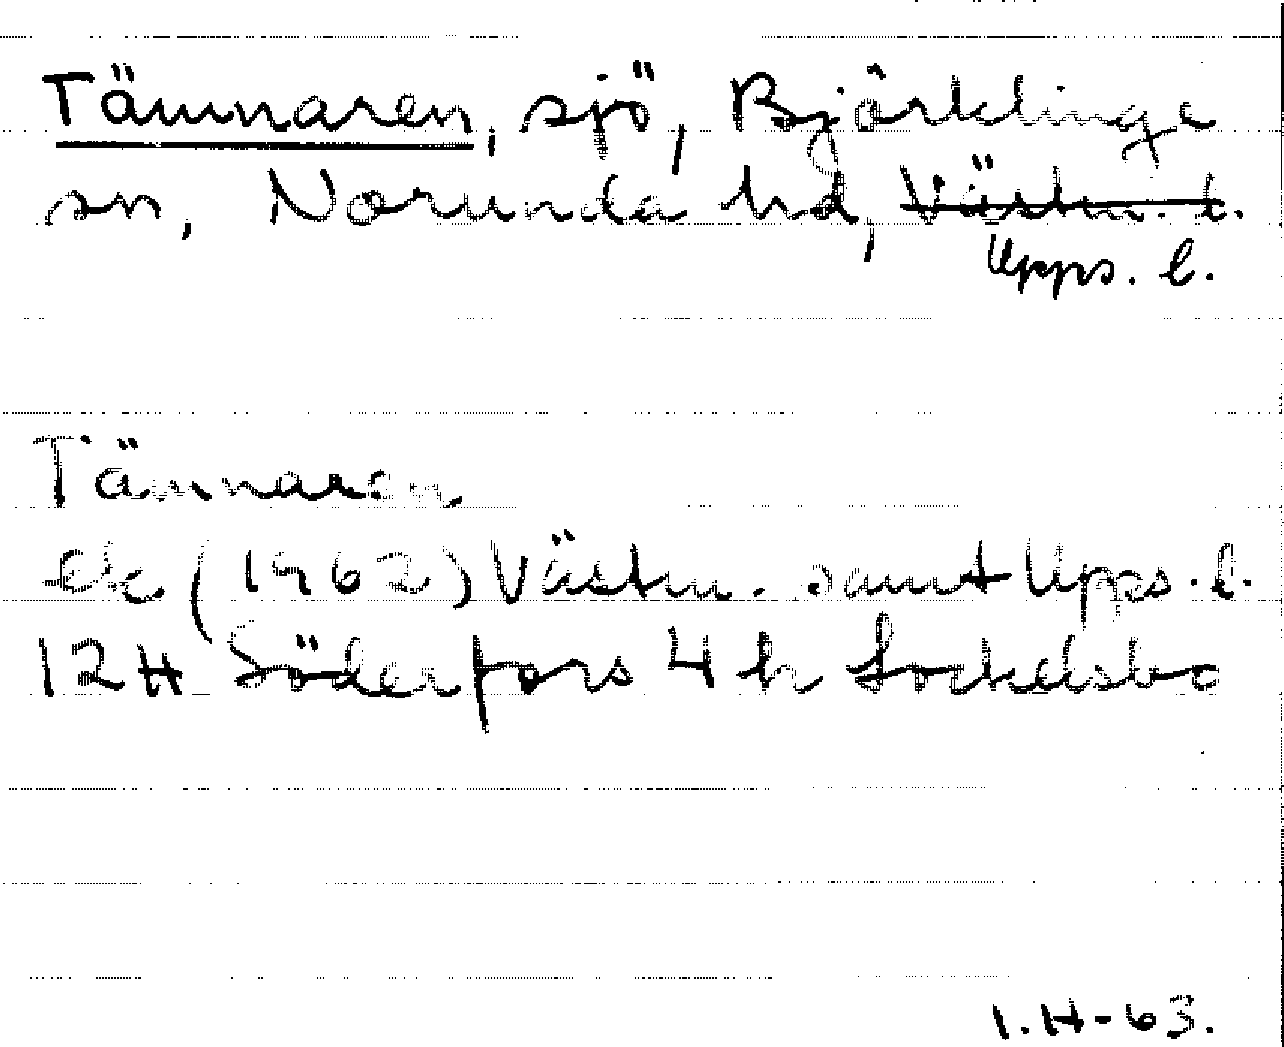 Tämnaren, sjö, Björklinge
sn, Norunda hd, Västm. l.
Upps. l.
Tämnaren
Ek (1962) Västm. samt Upps. l.
12H Söderfors 4 h Sockelsbo
I.H-63.